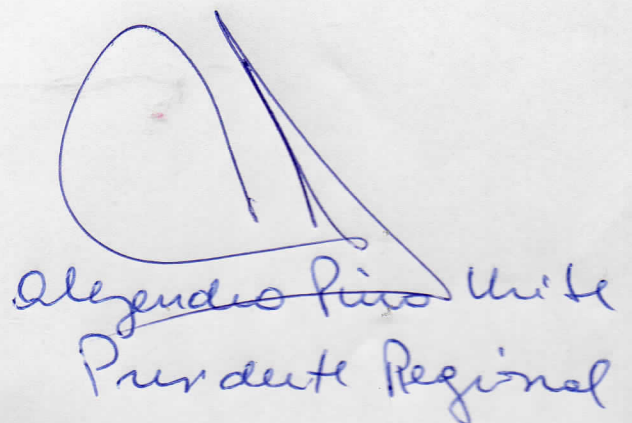 Alejandro Pino Uribe
Presidente Regional